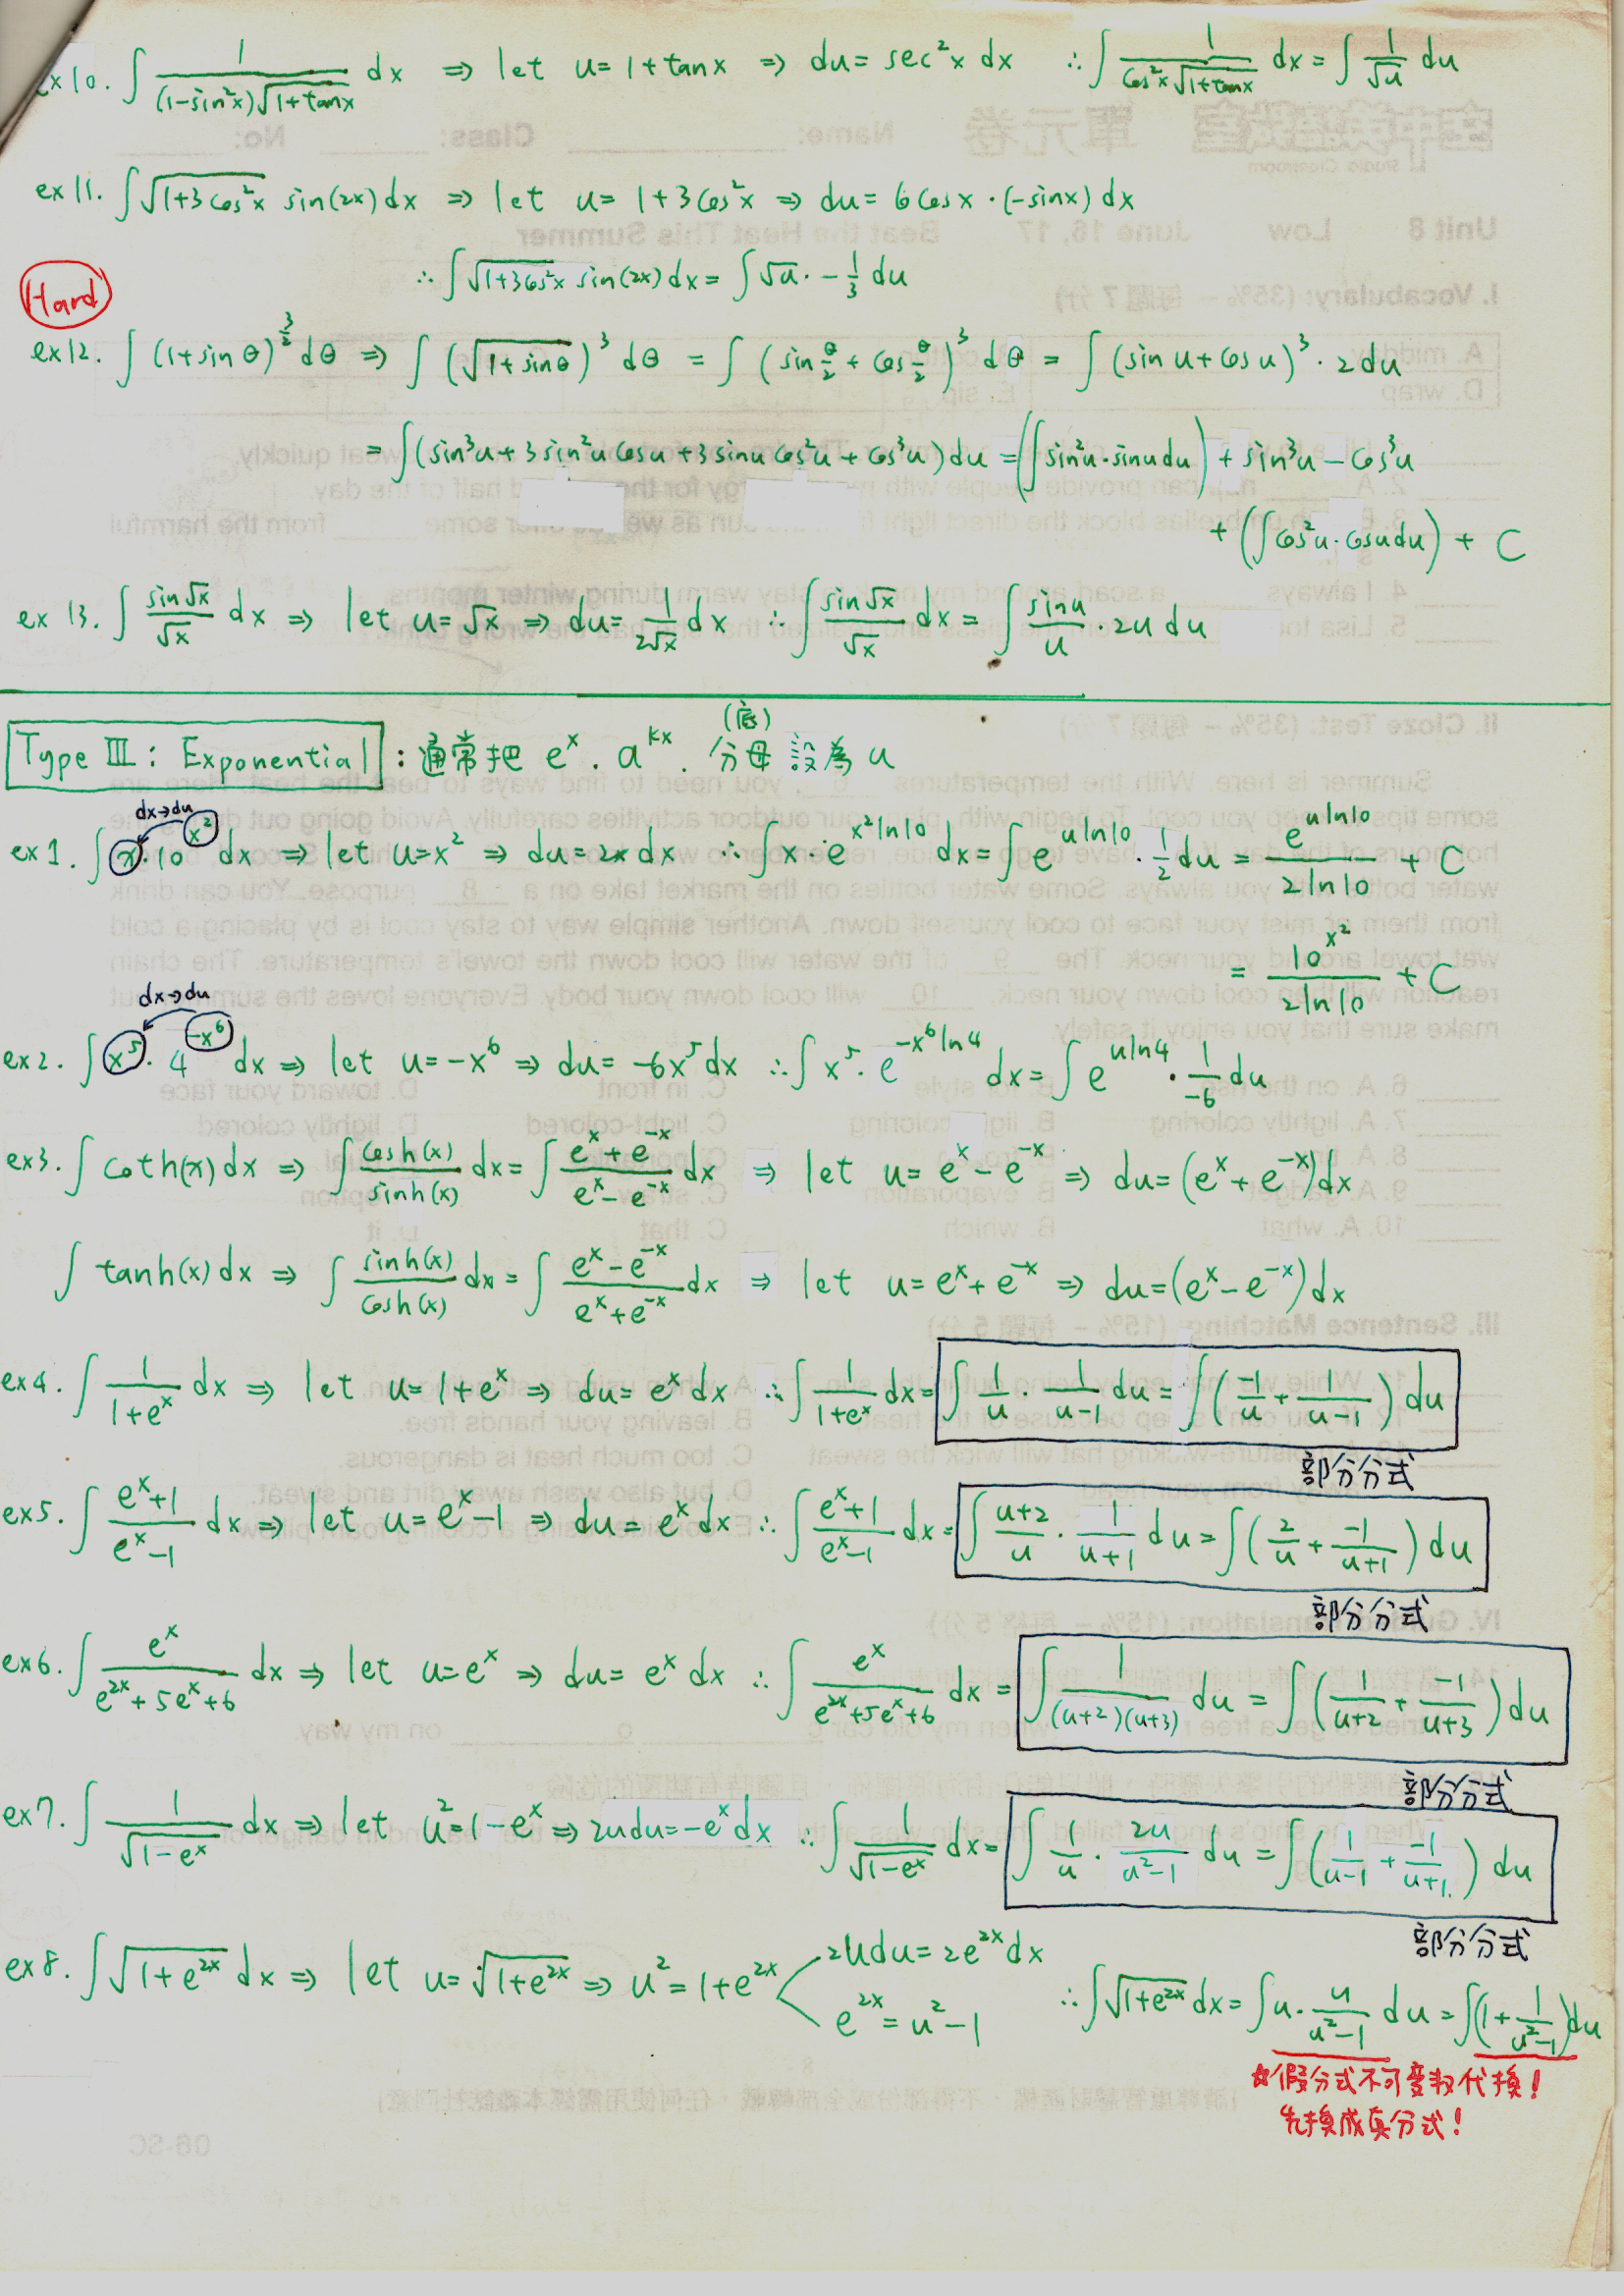 ex10. ∫ 1/((1-sin²x)√(1+tanx)) dx ⇒ let u = 1+tanx ⇒ du = sec²x dx ∴ ∫ 1/(cos²x√(1+tanx)) dx = ∫ 1/√u du
ex11. ∫ √(1+3cos²x) sin(2x) dx ⇒ let u = 1+3cos²x ⇒ du = 6cosx·(-sinx) dx
∴ ∫ √(1+3cos²x) sin(2x) dx = ∫ √u · -1/3 du
Hard
ex12. ∫ (1+sinθ)^(3/2) dθ ⇒ ∫ (√(1+sinθ))³ dθ = ∫ (sin θ/2 + cos θ/2)³ dθ = ∫ (sin u + cos u)³ · 2du
= ∫ (sin³u + 3sin²u cosu + 3sinu cos²u + cos³u) du = (∫ sin²u·sinu du) + sin³u - cos³u
+ (∫ cos²u·cosu du) + C
ex13. ∫ sin√x/√x dx ⇒ let u = √x ⇒ du = 1/(2√x) dx ∴ ∫ sin√x/√x dx = ∫ sinu/u · 2u du
(底)
Type III: Exponential : 通常把 e^x. a^(kx). 分母 設為 u
dx→du
ex1. ∫ x·10^(x²) dx ⇒ let u=x² ⇒ du=2x dx ∴ ∫ x·e^(x²ln10) dx = ∫ e^(uln10)·1/2 du = e^(uln10)/(2ln10) + C
= 10^(x²)/(2ln10) + C
dx→du
ex2. ∫ x⁵·4^(-x⁶) dx ⇒ let u=-x⁶ ⇒ du=-6x⁵dx ∴ ∫ x⁵·e^(-x⁶ln4) dx = ∫ e^(uln4)·1/-6 du
ex3. ∫ coth(x) dx ⇒ ∫ cosh(x)/sinh(x) dx = ∫ (e^x+e^-x)/(e^x-e^-x) dx ⇒ let u=e^x-e^-x ⇒ du=(e^x+e^-x)dx
∫ tanh(x) dx ⇒ ∫ sinh(x)/cosh(x) dx = ∫ (e^x-e^-x)/(e^x+e^-x) dx ⇒ let u=e^x+e^-x ⇒ du=(e^x-e^-x)dx
ex4. ∫ 1/(1+e^x) dx ⇒ let u=1+e^x ⇒ du=e^x dx ∴ ∫ 1/(1+e^x) dx = ∫ 1/u · 1/(u-1) du = ∫ (-1/u + 1/(u-1)) du
部分分式
ex5. ∫ (e^x+1)/(e^x-1) dx ⇒ let u=e^x-1 ⇒ du=e^x dx ∴ ∫ (e^x+1)/(e^x-1) dx = ∫ (u+2)/u · 1/(u+1) du = ∫ (2/u + -1/(u+1)) du
部分分式
ex6. ∫ e^x/(e^(2x)+5e^x+6) dx ⇒ let u=e^x ⇒ du=e^x dx ∴ ∫ e^x/(e^(2x)+5e^x+6) dx = ∫ 1/((u+2)(u+3)) du = ∫ (1/(u+2) + -1/(u+3)) du
部分分式
ex7. ∫ 1/√(1-e^x) dx ⇒ let u²=1-e^x ⇒ 2udu=-e^x dx ∴ ∫ 1/√(1-e^x) dx = ∫ 1/u · 2u/(u²-1) du = ∫ (1/(u-1) + -1/(u+1)) du
部分分式
ex8. ∫ √(1+e^(2x)) dx ⇒ let u=√(1+e^(2x)) ⇒ u²=1+e^(2x) 2udu=2e^(2x)dx
e^(2x)=u²-1
∴ ∫ √(1+e^(2x)) dx = ∫ u·u/(u²-1) du = ∫ (1+1/(u²-1)) du
☆假分式不可變數代換!
先換成真分式!